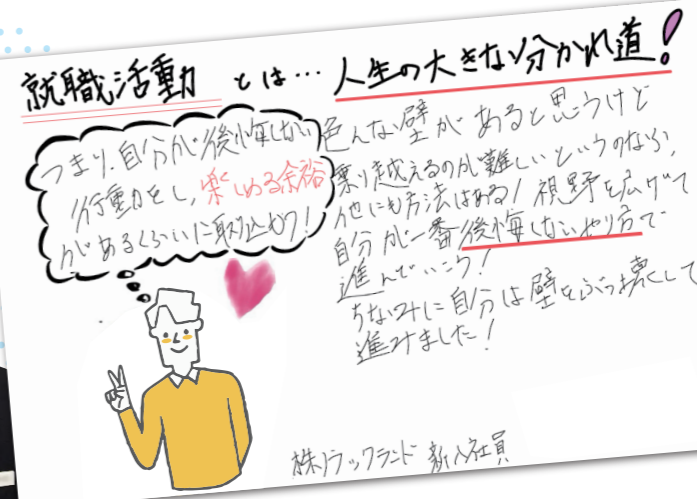 就職活動 とは… 人生の大きな分かれ道!
つまり、自分が後悔しない
行動をし、楽しめる余裕
があるくらいに取り込もう!
色んな壁があると思うけど
乗り越えるのが難しいというのなら、
他にも方法はある!視野を広げて
自分が一番後悔しないやり方で
進んでいこう!
ちなみに自分は壁をぶっ壊して
進みました!
株)ラックランド 新入社員